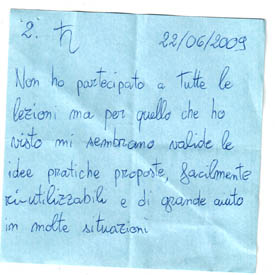 2. ♄ 22/06/2009
Non ho partecipato a tutte le
lezioni ma per quello che ho
visto mi sembrano valide le
idee pratiche proposte, facilmente
riutilizzabili e di grande aiuto
in molte situazioni